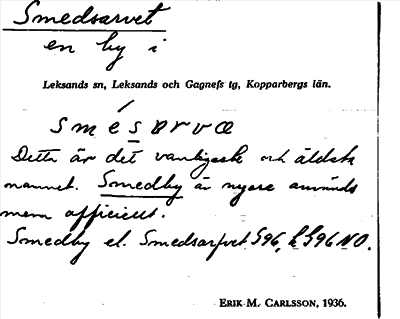 Smedsarvet
en by i
Leksands sn, Leksands och Gagnefs tg, Kopparbergs län.
smésarva
Detta är det vanligaste och äldsta
namnet. Smedby är nyare används
men officiellt.
Smedby el. Smedsarfvet G96, k G96 NO.
ERIK M. CARLSSON, 1936.